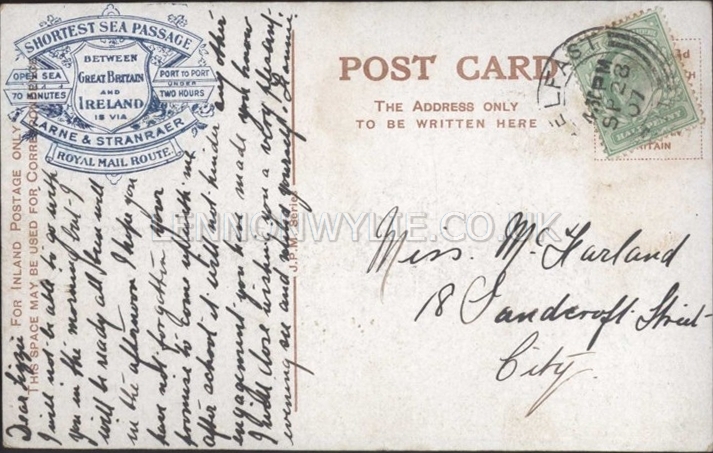 SHORTEST SEA PASSAGE
BETWEEN
GREAT BRITAIN
AND
IRELAND
IS VIA
OPEN SEA
70 MINUTES
PORT TO PORT
UNDER
TWO HOURS
LARNE & STRANRAER
ROYAL MAIL ROUTE.
POST CARD
THE ADDRESS ONLY
TO BE WRITTEN HERE
BELFAST
SP 28
07
HALFPENNY
FOR INLAND POSTAGE ONLY
THIS SPACE MAY BE USED FOR CORRESPONDENCE
Dear Lizzie
I will not be able to go with
you in the morning but I
will be ready all then will
in the afternoon I hope you
have not forgotten your
promise to come up with me
after school it will not hinder another
engagement you have made you know
I will close wishing you a very pleasant
evening see and mind yourself.
J.P.M. Series
Miss. McFarland
18 Sandcroft Street
City.
LENNONWYLIE.CO.UK